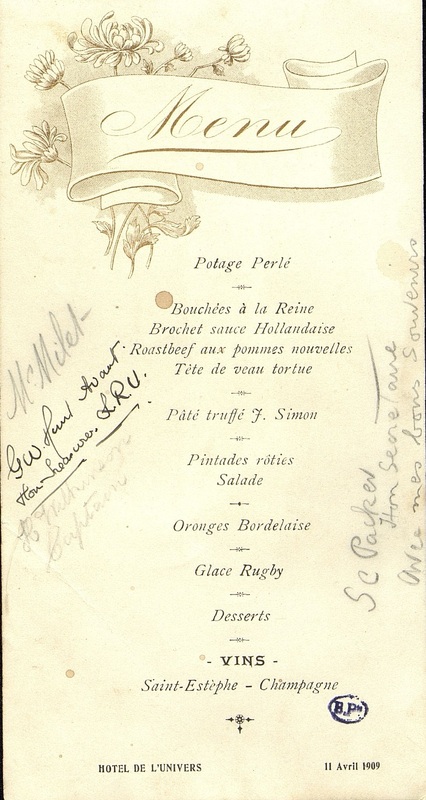 Menu
Potage Perlé
Bouchées à la Reine
Brochet sauce Hollandaise
Roastbeef aux pommes nouvelles
Tête de veau tortue
Pâté truffé J. Simon
Pintades rôties
Salade
Oronges Bordelaise
Glace Rugby
Desserts
- VINS -
Saint-Estèphe - Champagne
HOTEL DE L'UNIVERS
11 Avril 1909
Hon Treasurer
Captain
S C Packer
Hon Secretaire
Avec mes bons Souvenirs